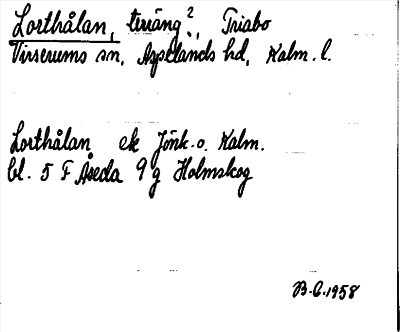 Lorthålan, teräng?, Triabo
Virserums sn, Aspelands hd, Kalm. l.
Lorthålan ek Jönk. o. Kalm.
bl. 5 F Åseda 9 g Holmskog
B. G. 1958